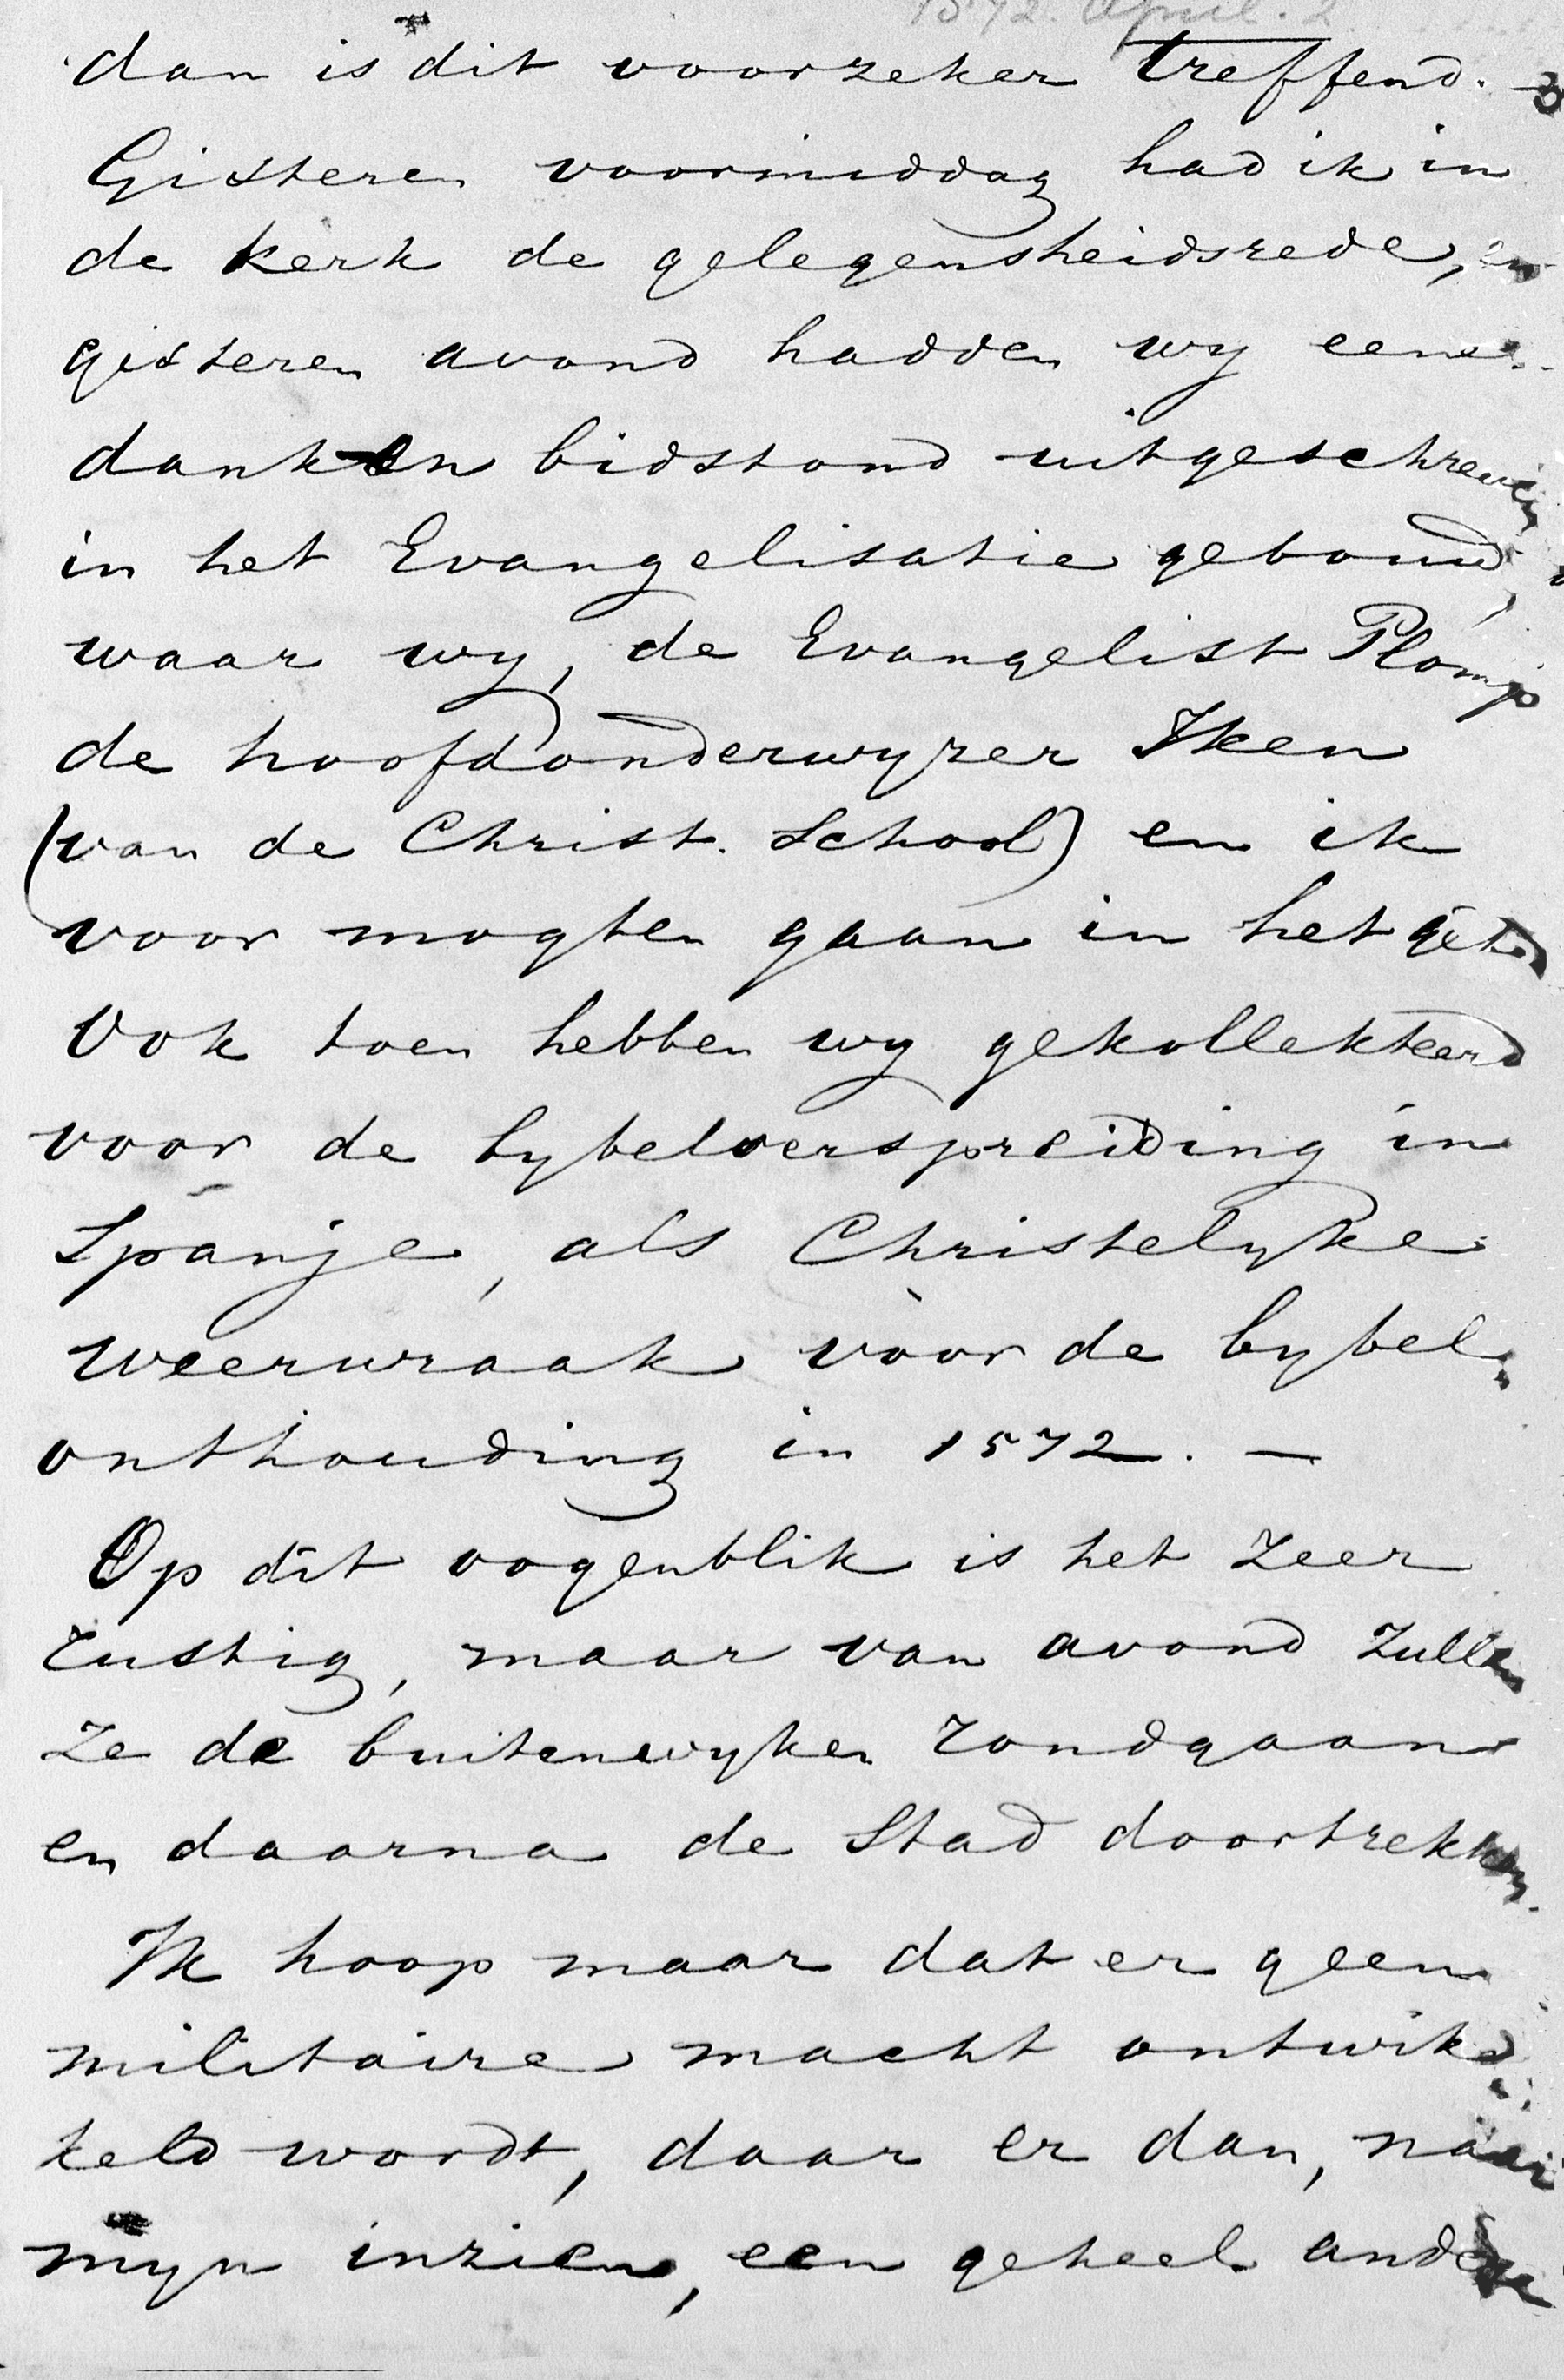 1872. April. 2
dan is dit voorzeker treffend. —
Gisteren voormiddag had ik in
de kerk de gelegensheidsrede, en
gisteren avond hadden wy eene
dank en bidstond uitgeschreven
in het Evangelisatie gebouw,
waar wy, de Evangelist Plomp
de hoofdonderwyzer Iken
(van de Christ. School) en ik
voor mogten gaan in het
Ook toen hebben wy gekollekteerd
voor de bybelverspreiding in
Spanje, als Christelyke
weerwraak voor de bybel-
onthouding in 1572. —
Op dit oogenblik is het zeer
rustig, maar van avond zullen
ze de buitenwyken rondgaan
en daarna de Stad doortrekken.
Ik hoop maar dat er geen
militaire macht ontwik-
keld wordt, daar er dan, naar
myn inzien, een geheel andere